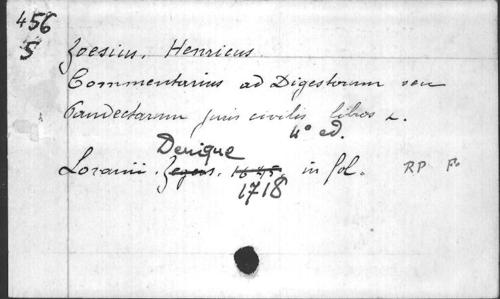 456
5
Zoesius, Henricus.
Commentarius ad Digestorum seu
Pandectarum juris civilis libros
4° ed.
Denique
Lovanii. Zegers. 1645. in fol. RP Fo
1718